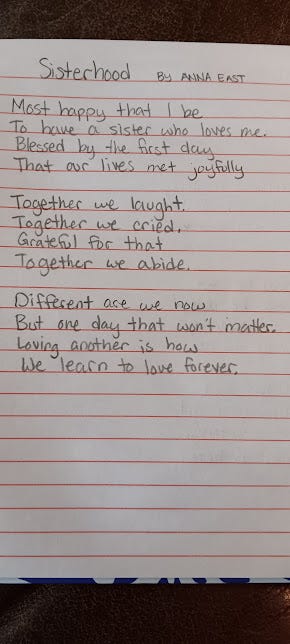 Sisterhood BY ANNA EAST
Most happy that I be
To have a sister who loves me.
Blessed by the first day
That our lives met joyfully
Together we laught.
Together we cried.
Grateful for that
Together we abide.
Different are we now
But one day that won't matter.
Loving another is how
We learn to love forever.